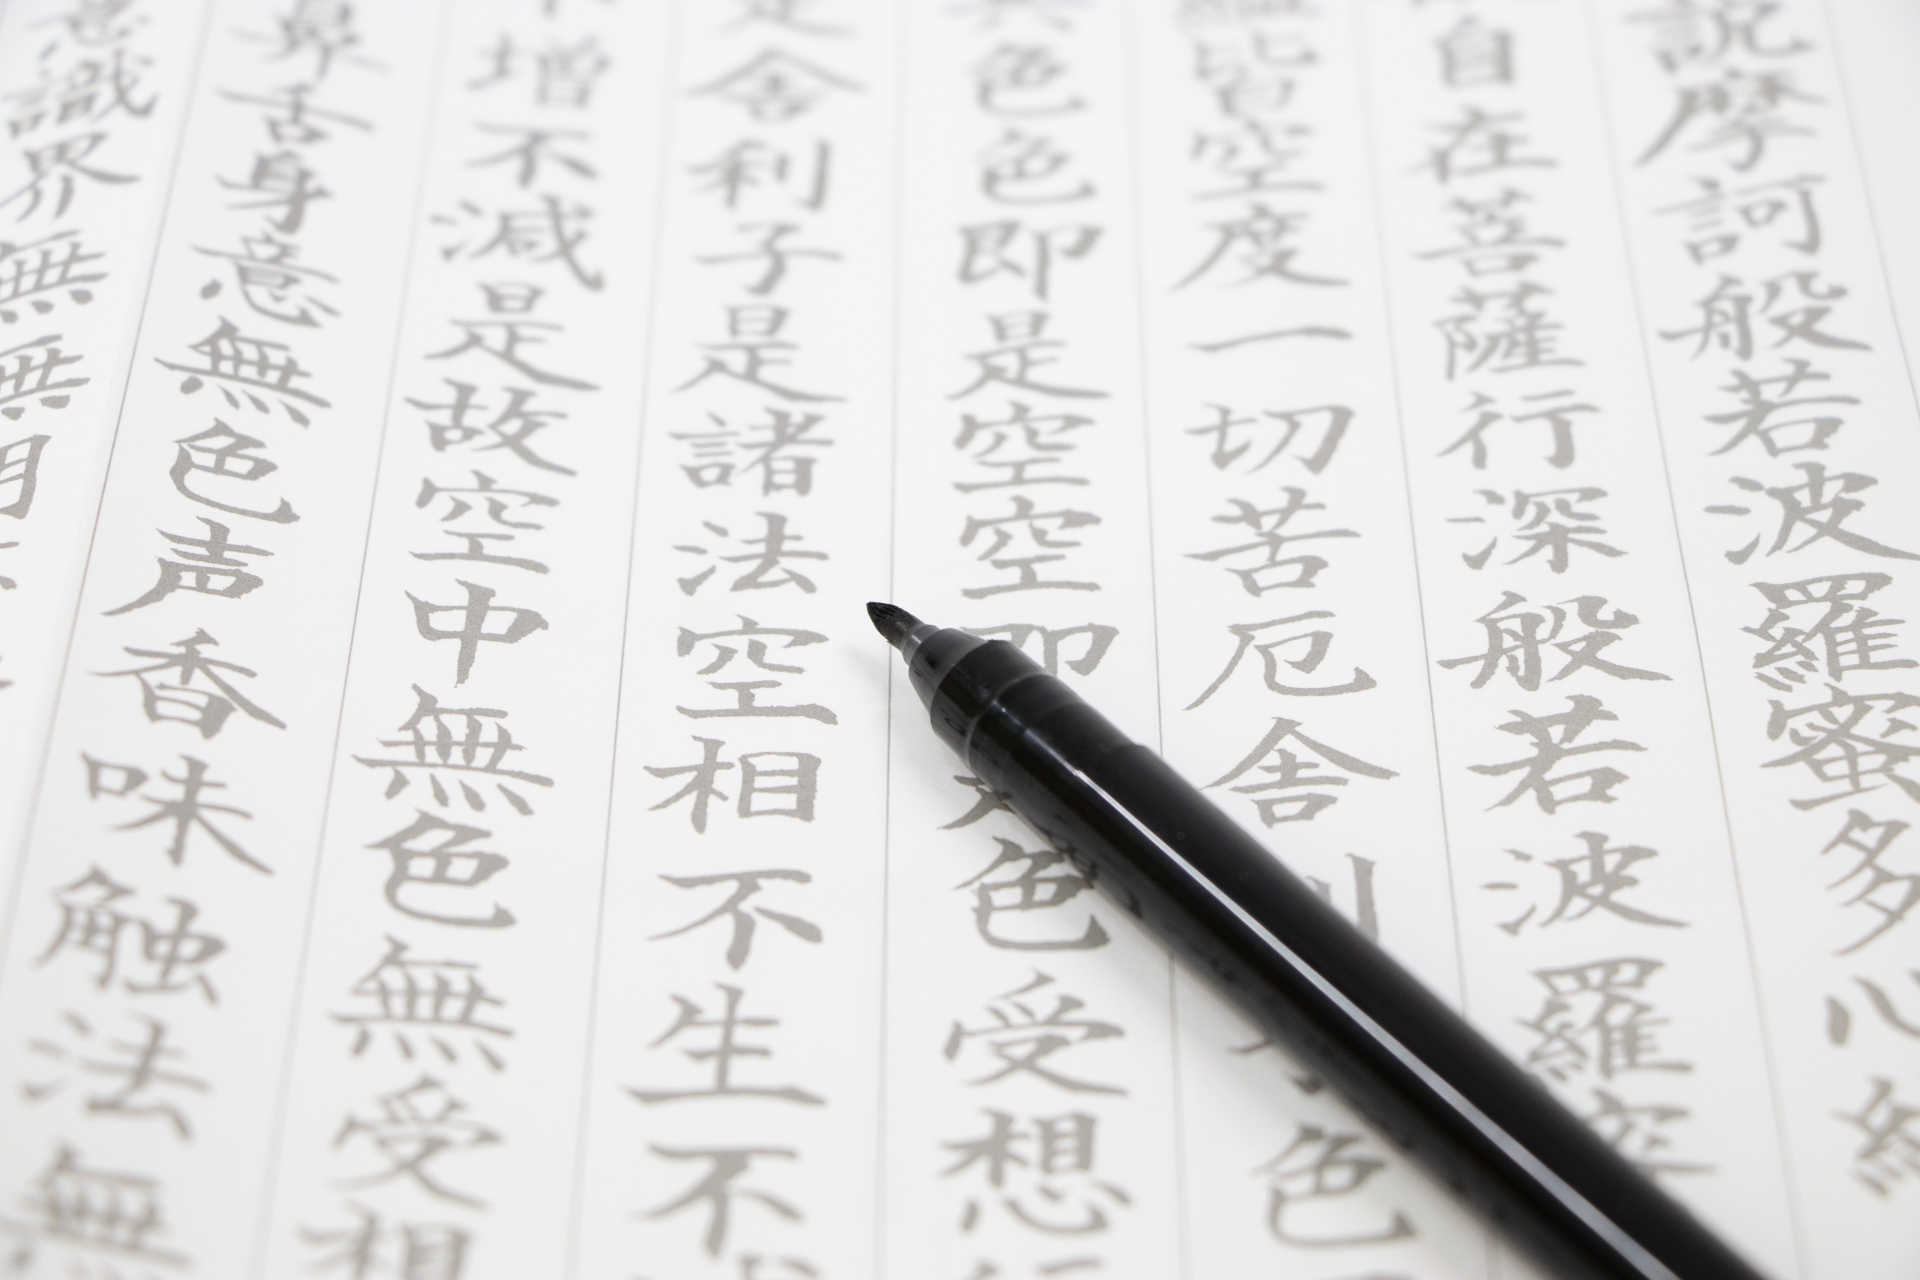 説摩訶般若波羅蜜多心経
自在菩薩行深般若波羅蜜
皆空度一切苦厄舎利色
色色即是空空即是色受想
是舎利子是諸法空相不生不
増不減是故空中無色無受想
鼻舌身意無色声香味触法無
意識界無無明